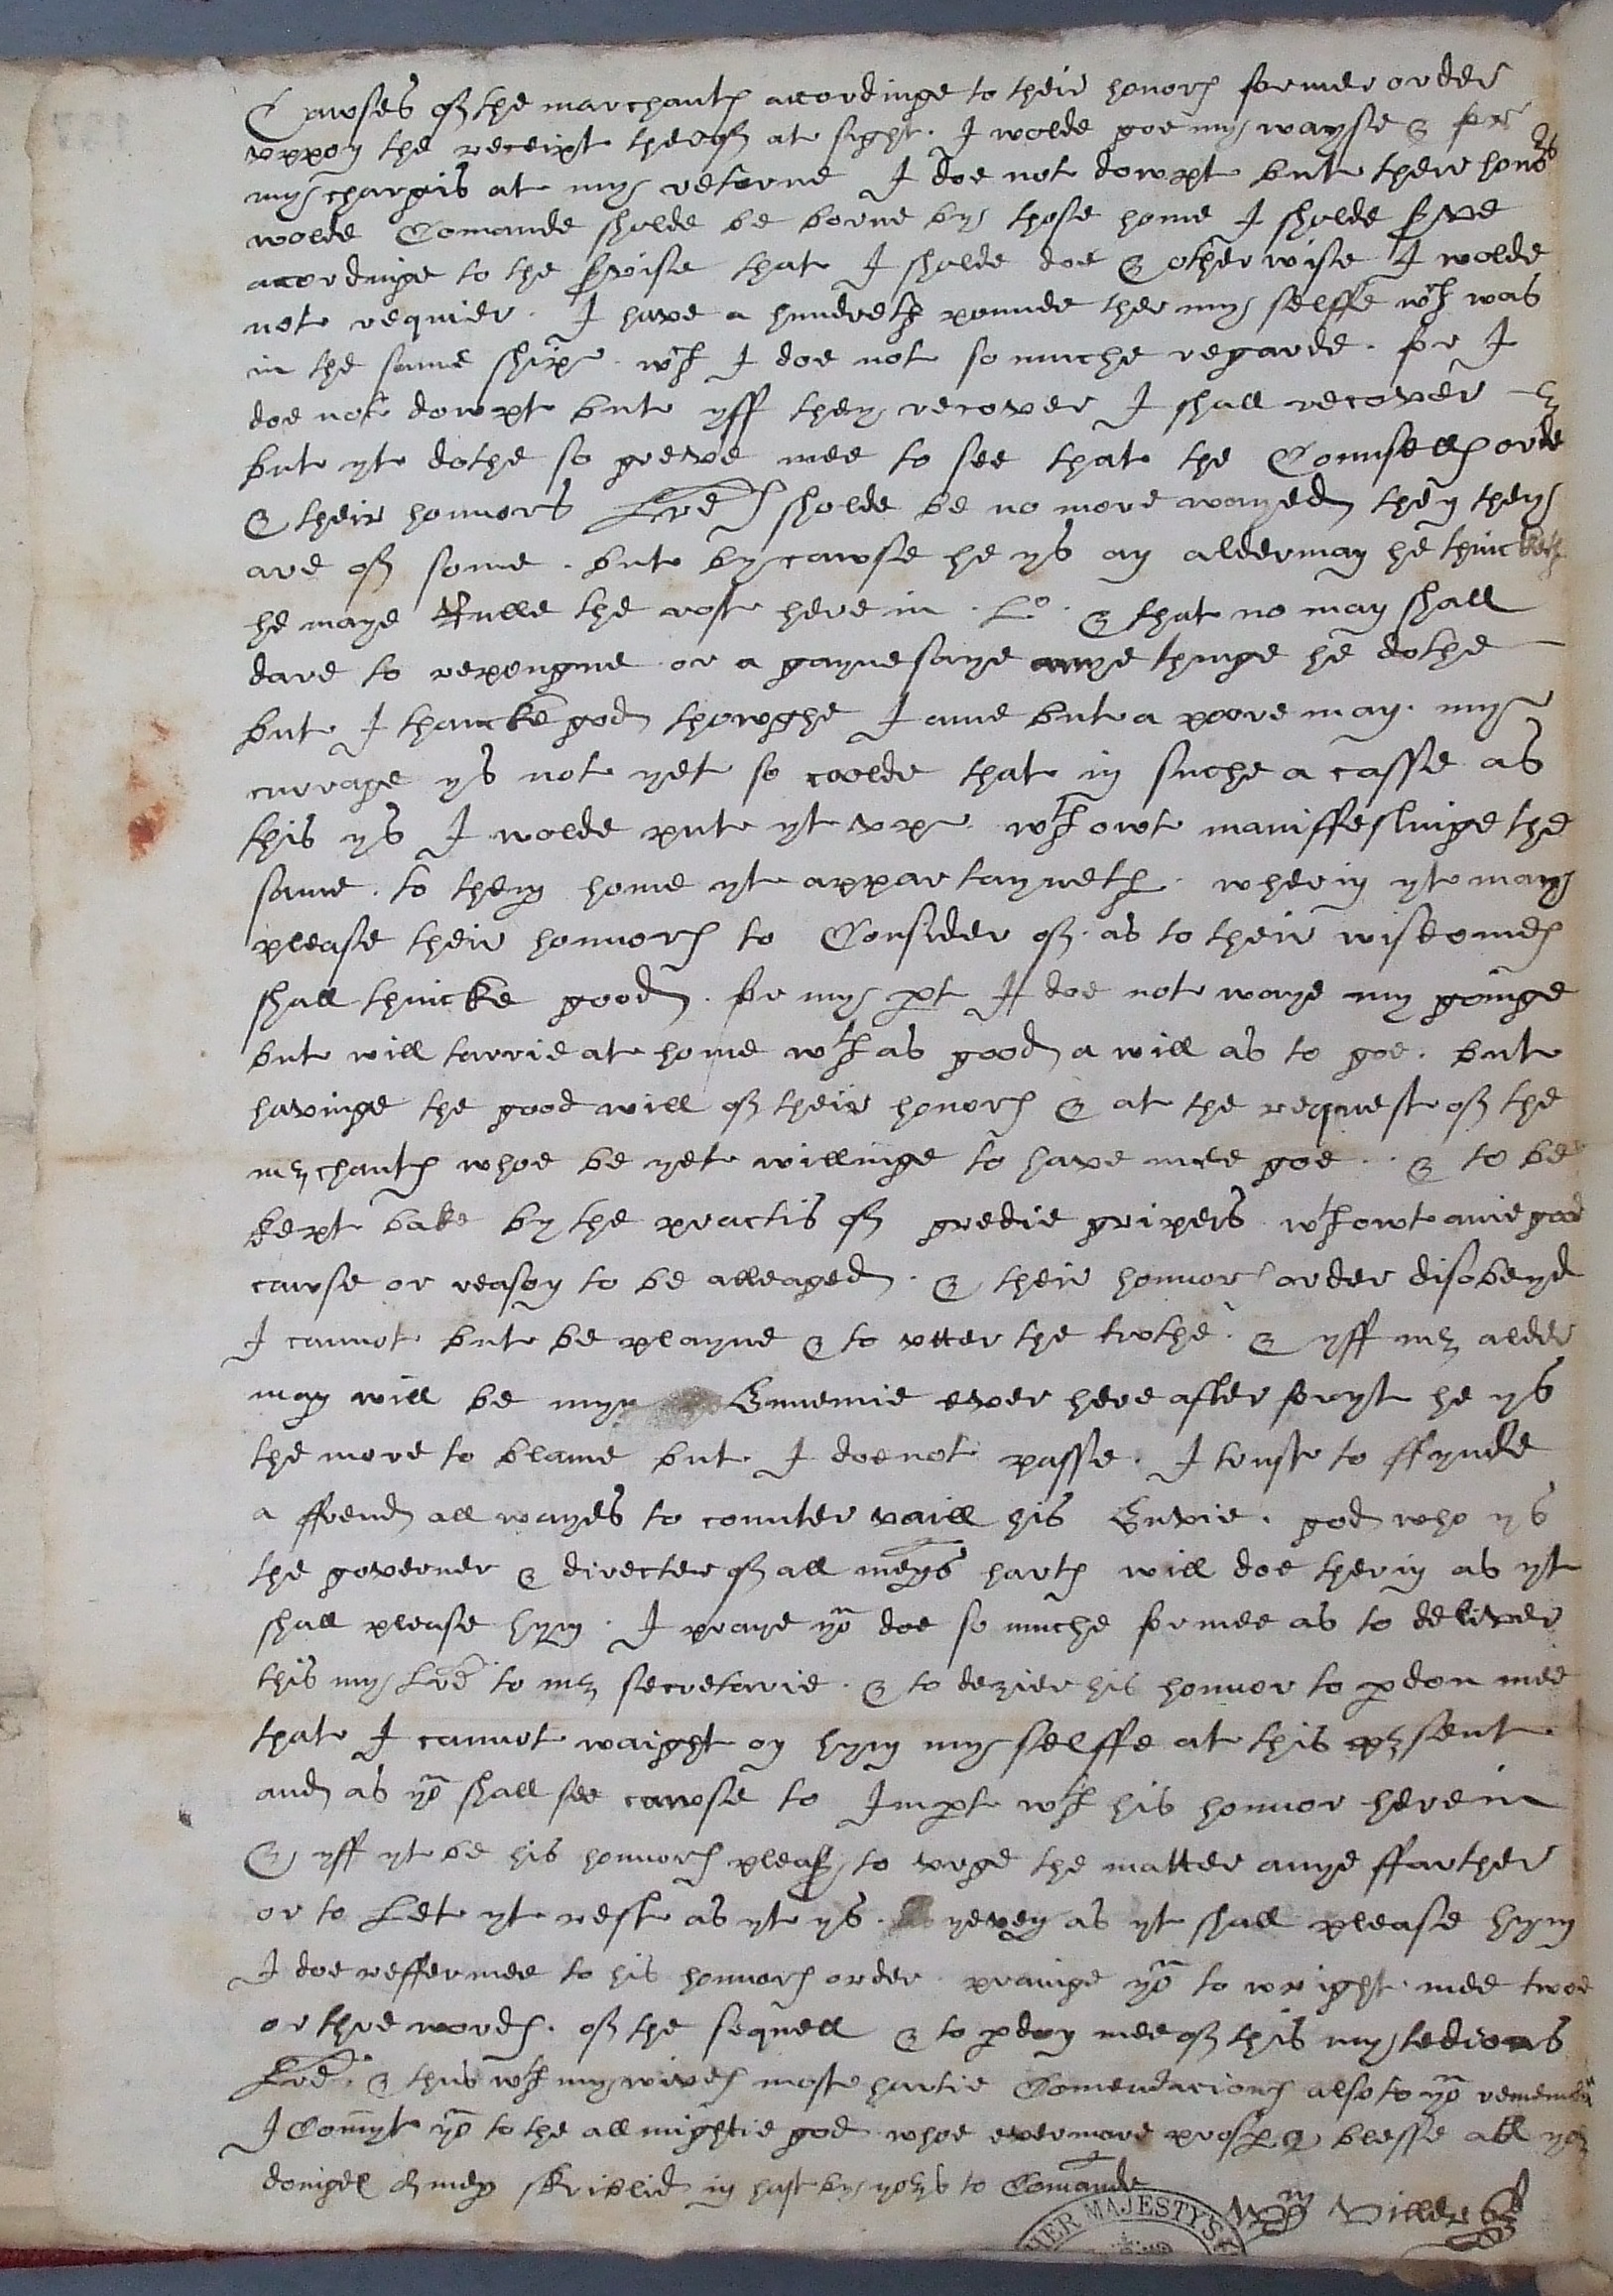 Cawses off the marchantes accordinge to their honors former order
uppon the receipt therof at sight. I wolde goe my wayse & for
my chargis at my retorne I doe not dowpt but their honors
wolde Comande sholde be borne by those home I sholde serve
accordinge to the servise that I sholde doe & otherwise I wolde
not requier. I have a hundreth pounde ther my selffe wch was
in the same shipe. wch I doe not so muche regarde. for I
doe note dowpt but yff they recover I shall recover
but yt dothe so greve mee to see that the Counselles orde
& their honnors Lres sholde be no more wayed then they
are off some. but by cawse he ys an alderman he thincketh
he maye Rulle the rost here in Lo. & that no man shall
dare to repongne or a gaynesaye anye thinge he dothe
but I thancke god thowghe I ame but a poore man. my
currage ys not yet so coolde that in suche a casse as
this ys I wolde put yt upe. wthowt maniffestinge the
same. to them home yt appartayneth. wherin yt may
please their honnors to Consider off. as to their wisdomes
shall thincke good. for my pt I doe not waye my goinge
but will tarrie at home wth as good a will as to goe. but
havinge the good will off their honors & at the request off the
mrchantes whoe be yet willinge to have mee goe.. & to be
kept bake by the practis off gredie gripers wthowt anie good
cawse or reason to be alleaged. & their honnors order disobeyd
I cannot but be playne & to utter the truthe. & yff mr alder
man will be myn Ennemie ever here after for yt he ys
the more to blame but I doe not passe. I truste to ffynde
a ffrend all wayes to counter vaill his Envie. god who ys
the governer & directer off all mens hartes will doe therin as yt
shall please hym. I praye yo doe so muche for mee as to deliver
this my Lre to mr secretarie. & to dezier his honnor to pdon mee
that I cannot waight on hym my selffe at this prsent
and as yo shall see cawse to Impt wth his honnor herein
& yff yt be his honnors pleasr to urge the matter anye ffarther
or to Let yt reste as yt ys. yeven as yt shall please hym
I doe reffer mee to his honnors order. prainge yo to wright mee twoe
or thre wordes. off the sequell & to pdon mee off this my tedious
Lre. & thus wth my wives moste hartie Comendacions also to yo remembrd
I Comyt yo to the allmightie god whoe evermore prosper & blesse all yor
doinges Amen skriblid in hast by yors to Comande
Wm Villers
HER MAJESTY'S